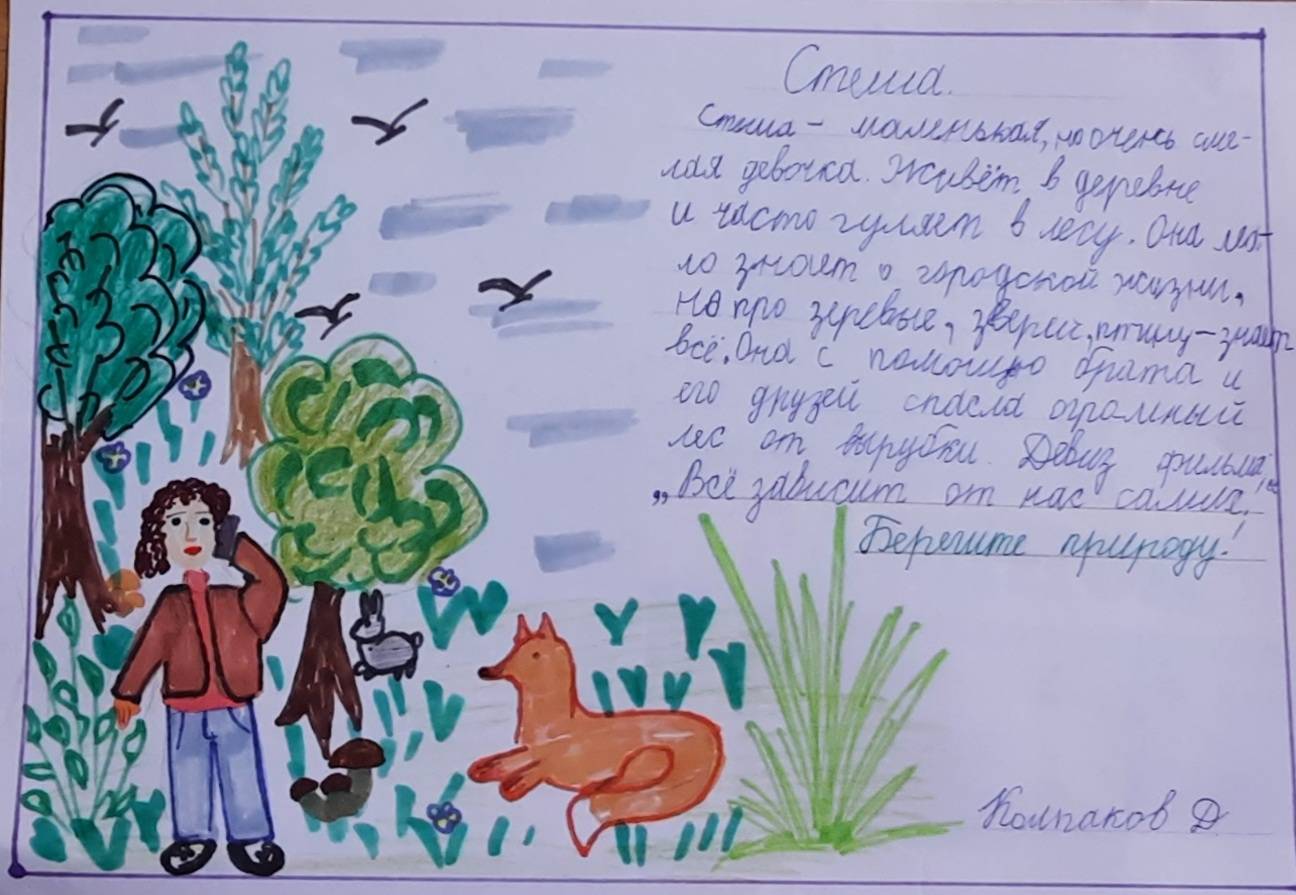 Стеша.
Стеша - маленькая, но очень сме-
лая девочка. Живёт в деревне
и часто гуляет в лесу. Она ма-
ло знает о городской жизни,
но про зеревые, зверей, птицу - знает
всё. Она с помощью брата и
его друзей спасла огромный
лес от вырубки. Девиз фильма:
„Всё зависит от нас самих!“
Берегите природу!
Колпаков Д